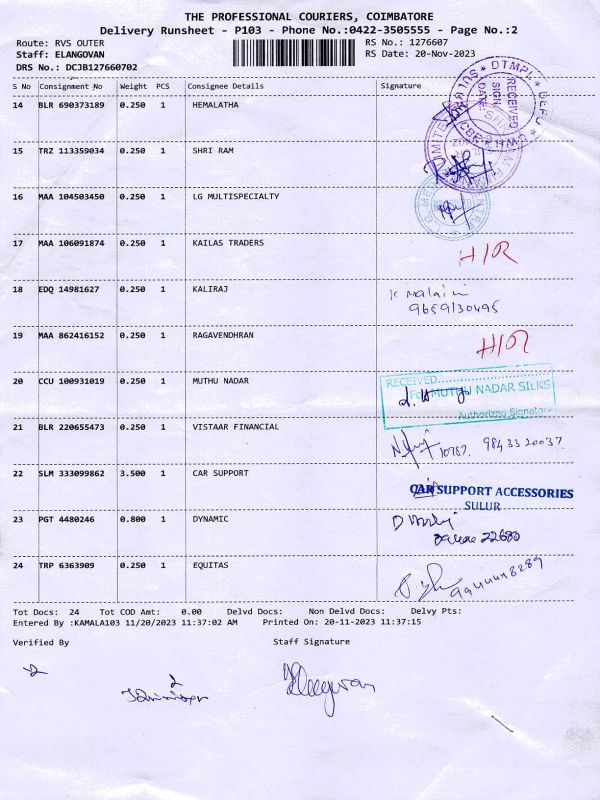 THE PROFESSIONAL COURIERS, COIMBATORE
Delivery Runsheet - P103 - Phone No.:0422-3505555 - Page No.:2
Route: RVS OUTER
RS No.: 1276607
Staff: ELANGOVAN
RS Date: 20-Nov-2023
DRS No.: DCJB127660702
S No Consignment No Weight PCS Consignee Details Signature
14 BLR 690373189 0.250 1 HEMALATHA
RECEIVED
SIGN
DATE
15 TRZ 113359034 0.250 1 SHRI RAM
16 MAA 104503450 0.250 1 LG MULTISPECIALTY
17 MAA 106091874 0.250 1 KAILAS TRADERS
18 EDQ 14981627 0.250 1 KALIRAJ
19 MAA 862416152 0.250 1 RAGAVENDHRAN
20 CCU 100931019 0.250 1 MUTHU NADAR
RECEIVED
For MUTHU NADAR SILKS
Authorized Signatory
21 BLR 220655473 0.250 1 VISTAAR FINANCIAL
9843320037
22 SLM 333099862 3.500 1 CAR SUPPORT
CAR SUPPORT ACCESSORIES
SULUR
23 PGT 4480246 0.800 1 DYNAMIC
24 TRP 6363909 0.250 1 EQUITAS
Tot Docs: 24 Tot COD Amt: 0.00 Delvd Docs: Non Delvd Docs: Delvy Pts:
Entered By :KAMALA103 11/20/2023 11:37:02 AM Printed On: 20-11-2023 11:37:15
Verified By Staff Signature